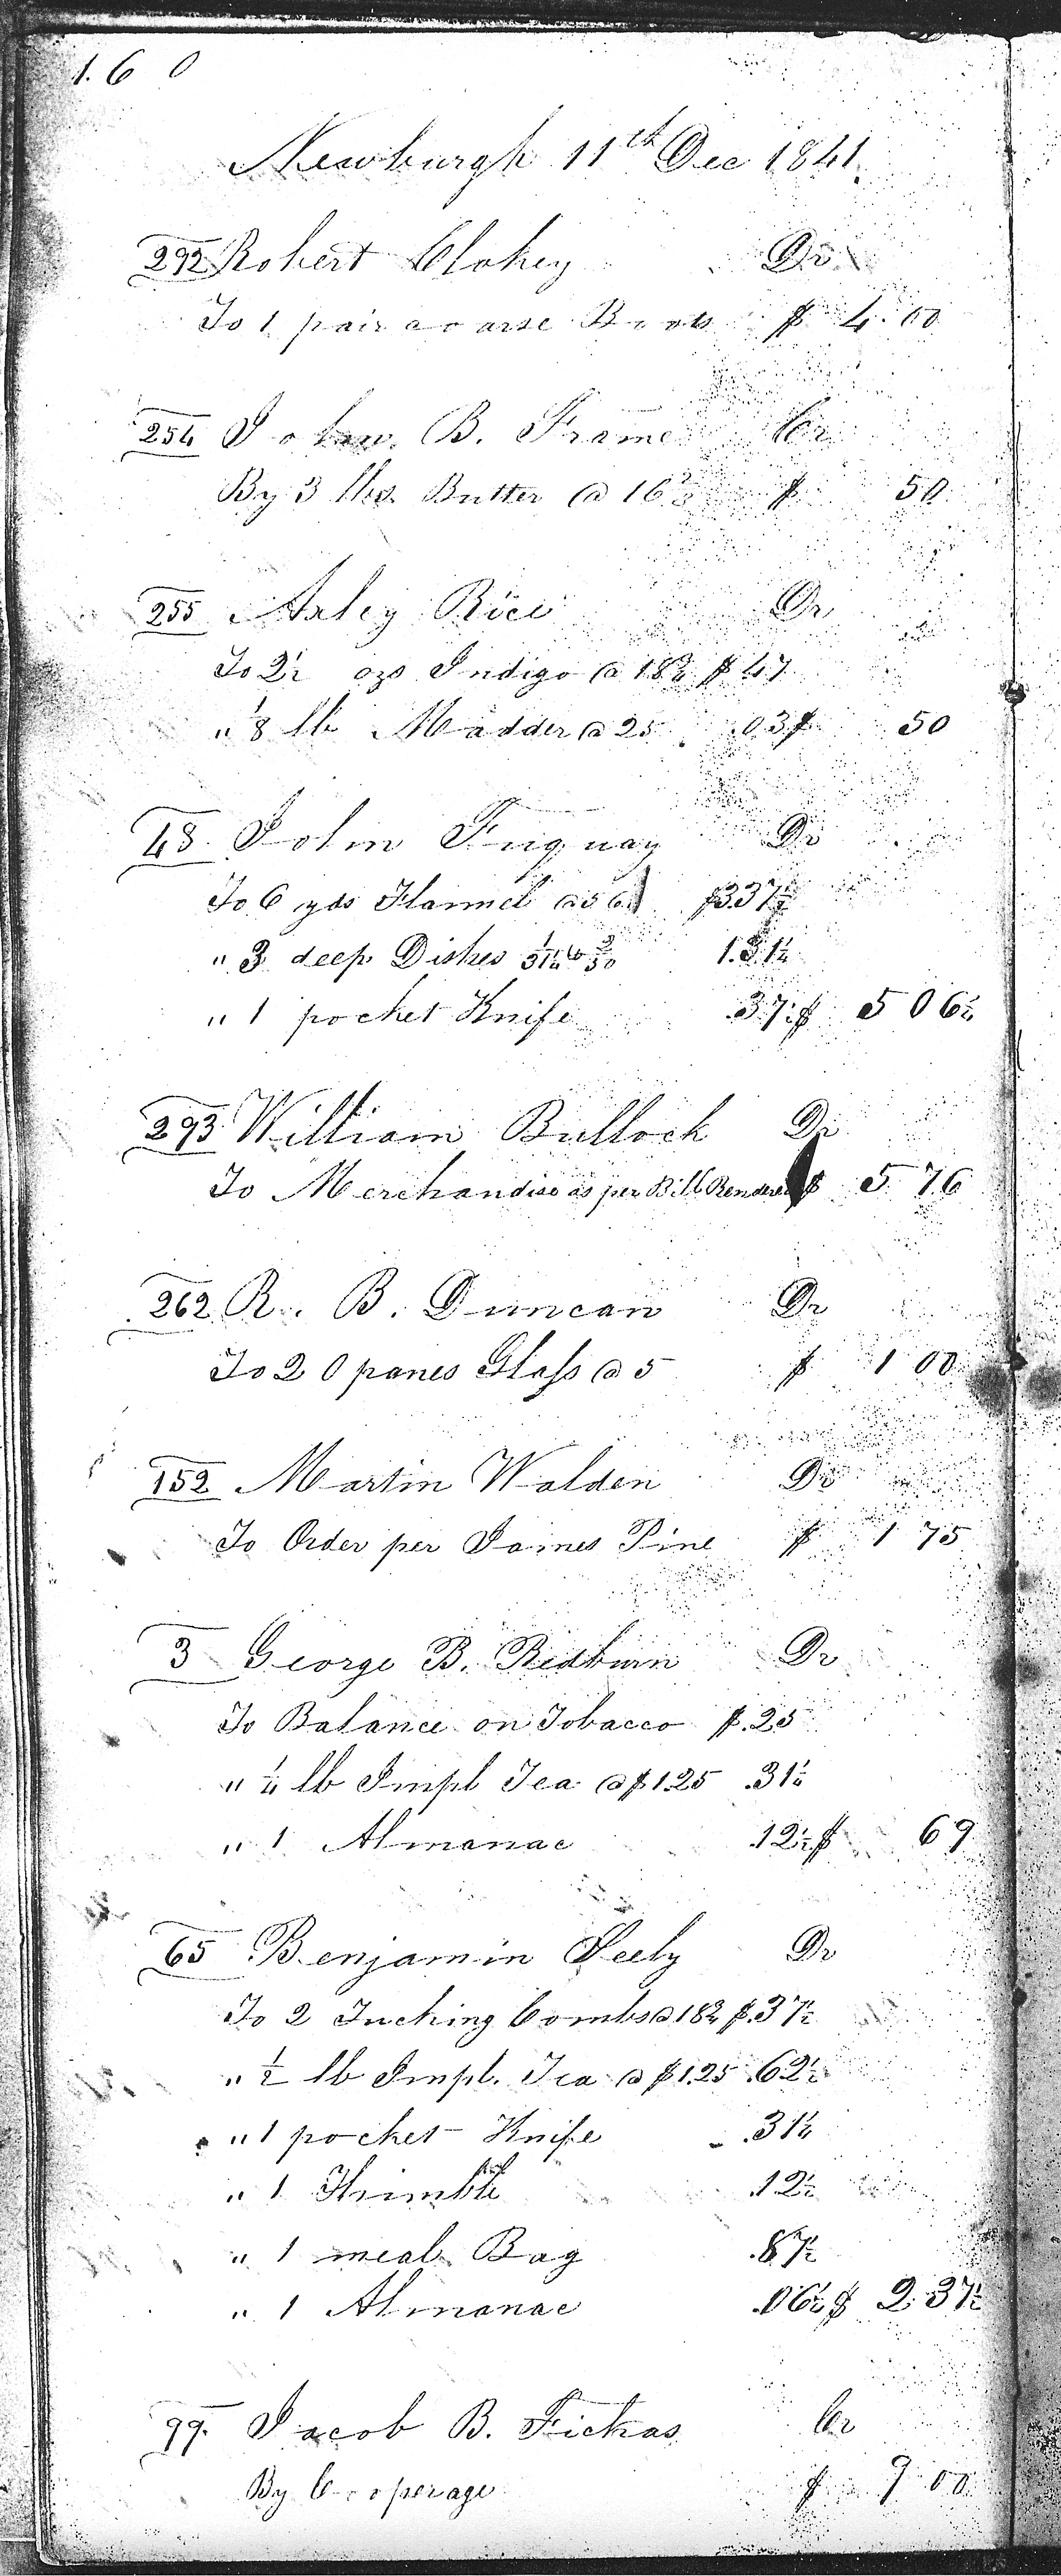 160
Newburgh 11th Dec 1841.
292 Robert Clokey Dr
To 1 pair coarse Boots $ 4.00
254 John B. Frame Cr
By 3 lbs Butter @ 16⅔ $ 50
255 Axley Rice Dr
To 2½ ozs Indigo @ 18¾ $ 47
" ⅛ lb Madder @ 25 .03 $ 50
48 John Fuquay Dr
To 6 yds Flannel @ 56¼ $3.37½
" 3 deep Dishes 1/31¼ & 2/50 1.31¼
" 1 pocket Knife .37½ $ 5 06¼
293 William Bullock Dr
To Merchandise as per Bill Rendered $ 5 76
262 R. B. Duncan Dr
To 20 panes Glass @ 5 $ 1 00
152 Martin Walden Dr
To Order per James Pine $ 1 75
3 George B. Redburn Dr
To Balance on Tobacco $.25
" ¼ lb Impl Tea @ $1.25 .31¼
" 1 Almanac .12½ $ 69
65 Benjamin Seely Dr
To 2 Tucking Combs @ 18¾ $.37½
" ½ lb Impl. Tea @ $1.25 .62½
" 1 pocket Knife .31¼
" 1 Thimble .12½
" 1 meal Bag .87½
" 1 Almanac .06¼ $ 2.37½
99. Jacob B. Fickas Cr
By Cooperage $ 9 00